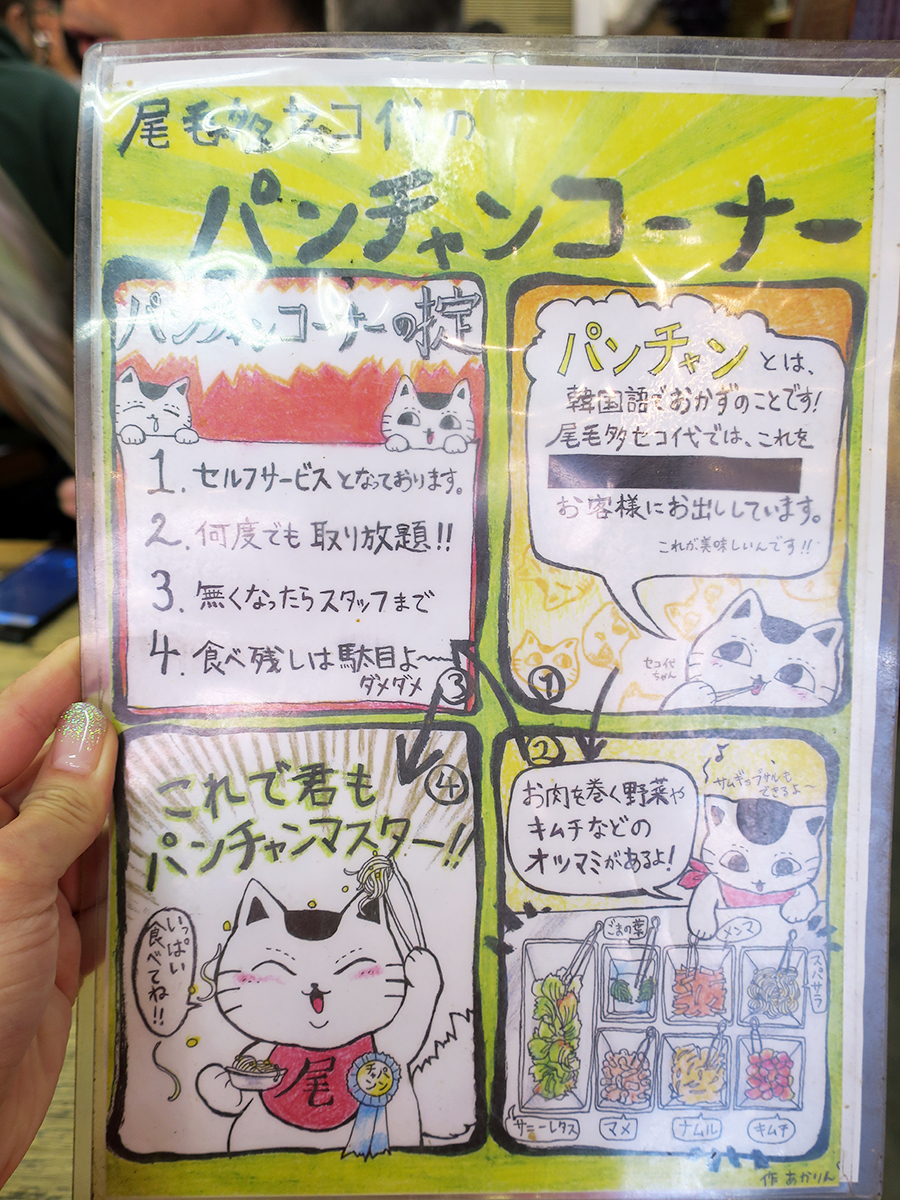 尾毛多セコ代の
パンチャンコーナー
パンチャンコーナーの掟
1. セルフサービスとなっております。
2. 何度でも取り放題!!
3. 無くなったらスタッフまで
4. 食べ残しは駄目よ〜
ダメダメ
③
パンチャンとは、
韓国語でおかずのことです!
尾毛多セコ代では、これを
お客様にお出ししています。
これが美味しいんです!!
セコ代
ちゃん
①
②
お肉を巻く野菜や
キムチなどの
オツマミがあるよ!
サムギョプサルも
できるよ〜
ごまの葉
メンマ
スパサラ
サニーレタス
マメ
ナムル
キムチ
④
これで君も
パンチャンマスター!!
いっぱい
食べてね!!
尾
パン
チャン
作 あかりん